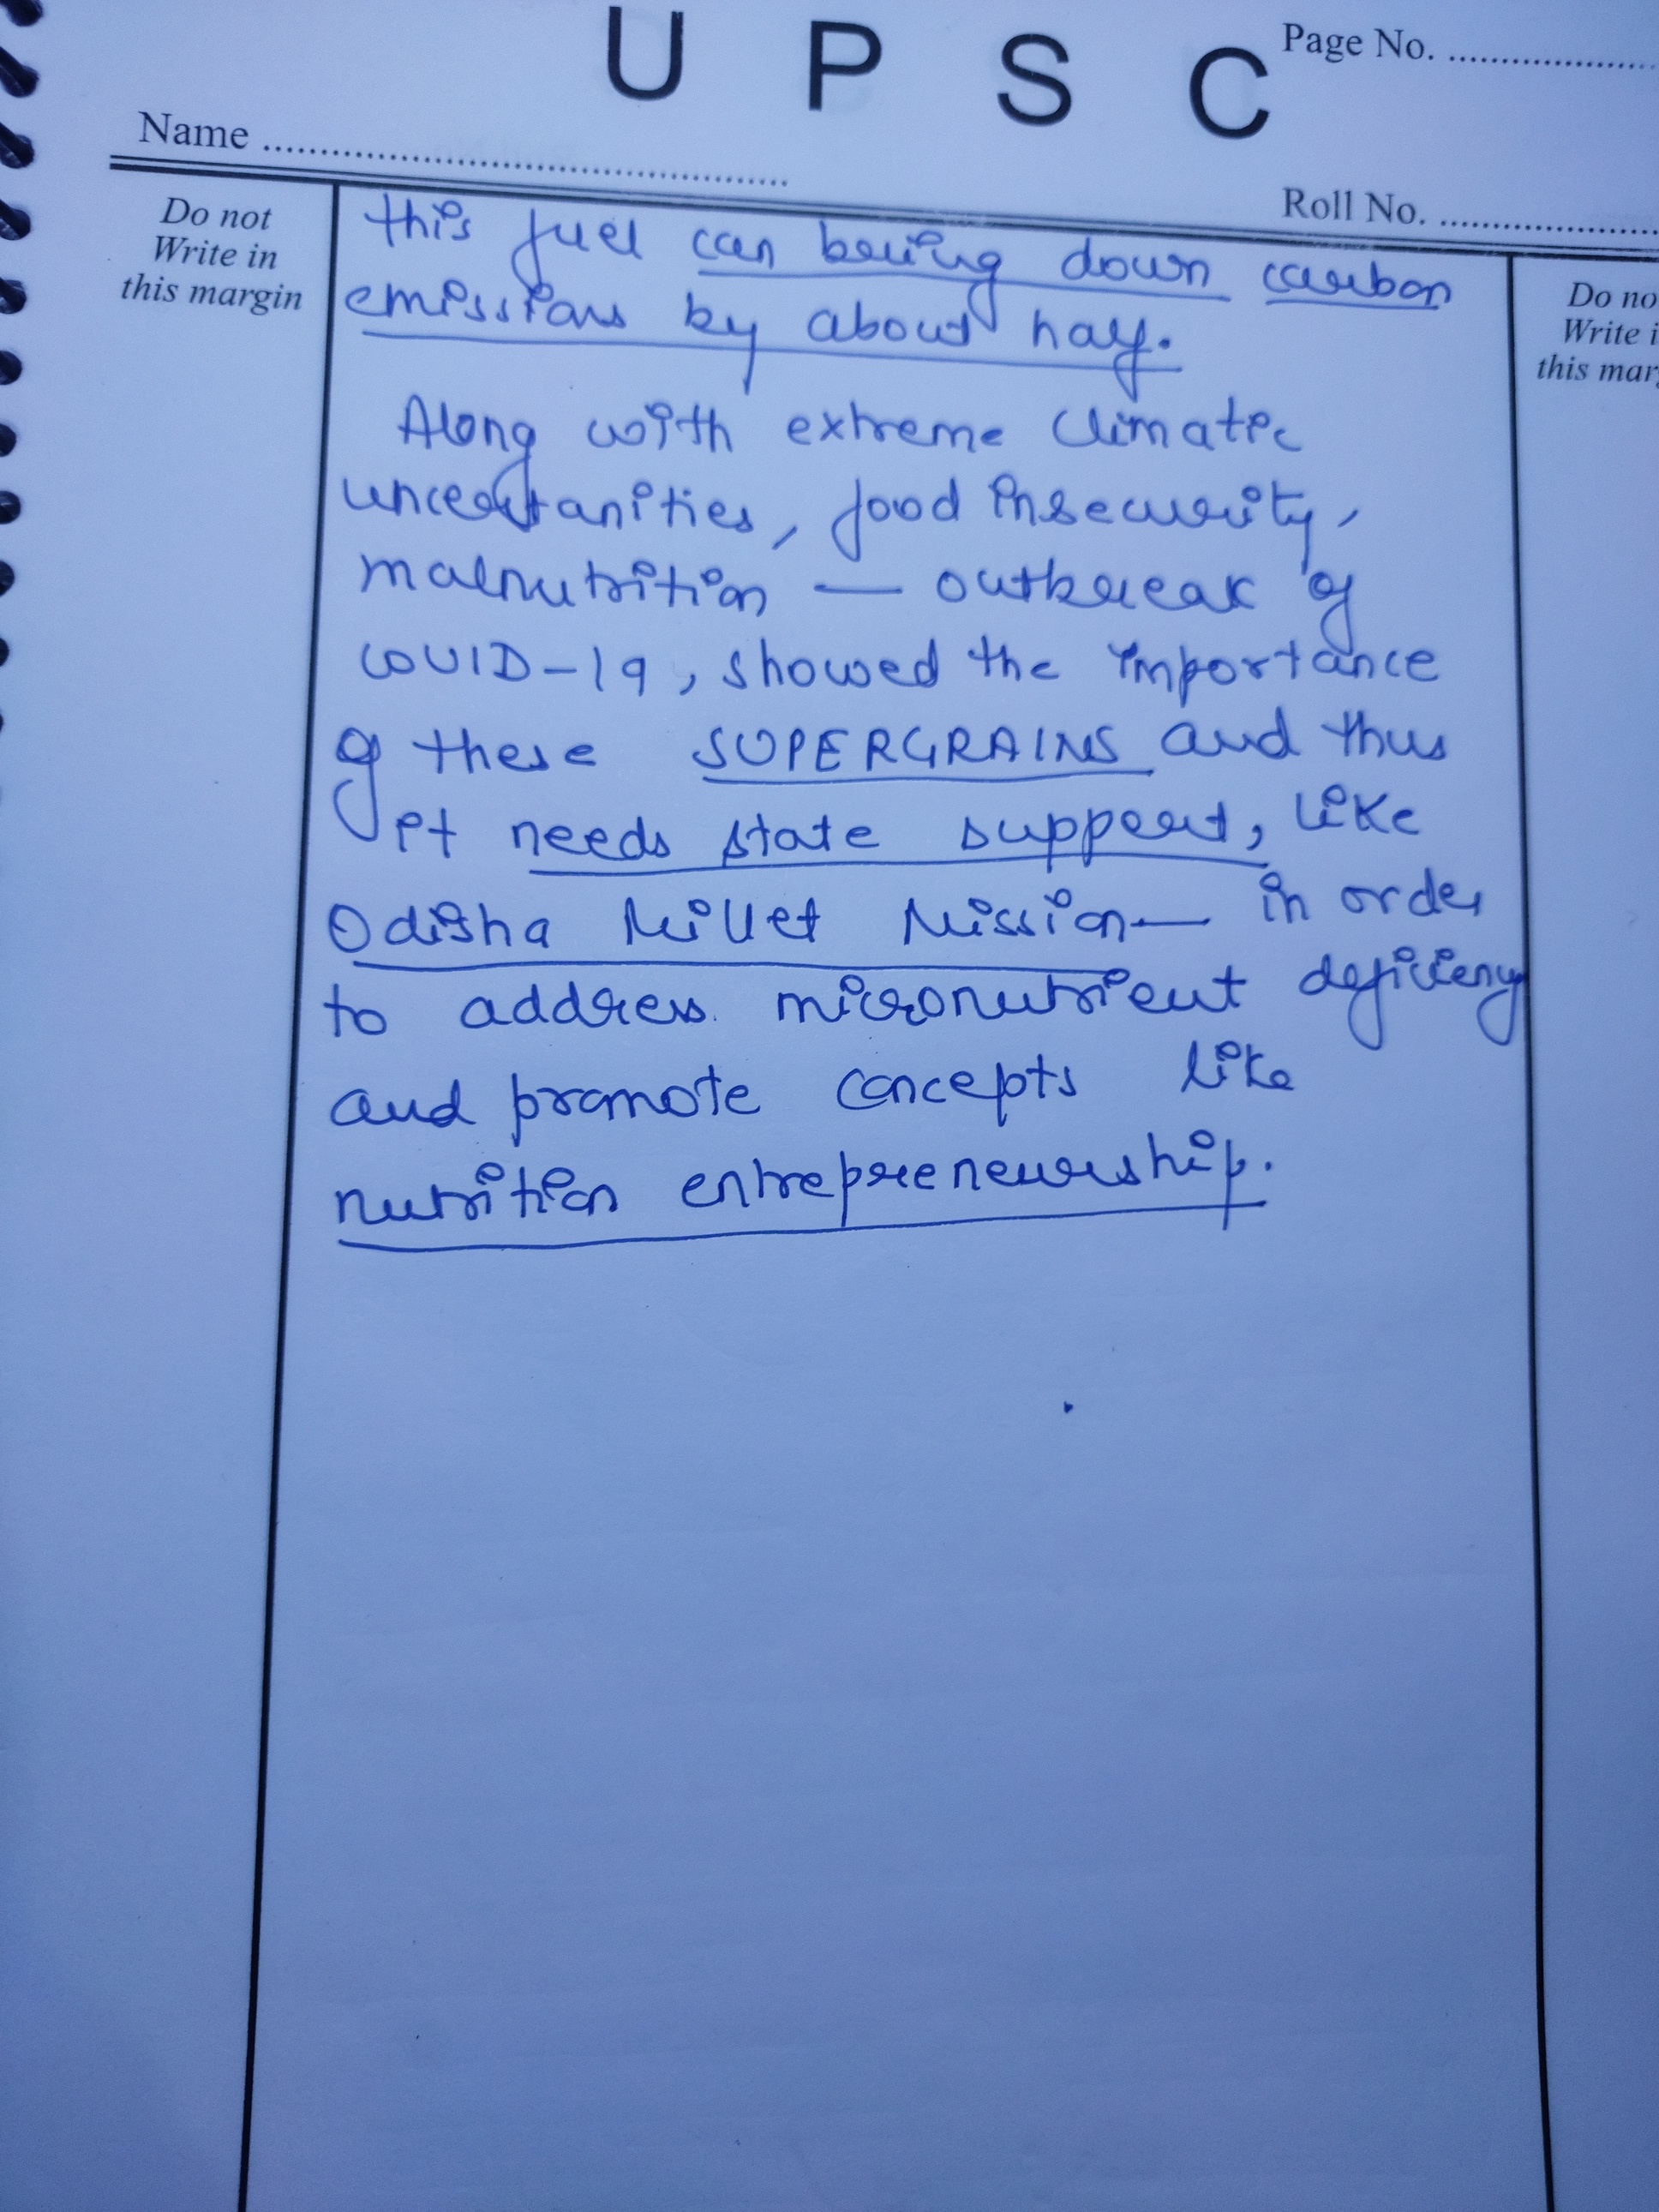 U P S C
Page No. ....................
Name ........................................
Roll No. ....................
Do not
Write in
this margin
this fuel can bring down carbon
emissions by about half.
Along with extreme climatic
uncertanities, food insecurity,
malnutrition — outbreak of
COVID-19, showed the importance
of these SUPERGRAINS and thus
it needs state support, like
Odisha Millet Mission — in order
to address micronutrient deficiency
and promote concepts like
nutrition entrepreneurship.
Do no
Write i
this mar